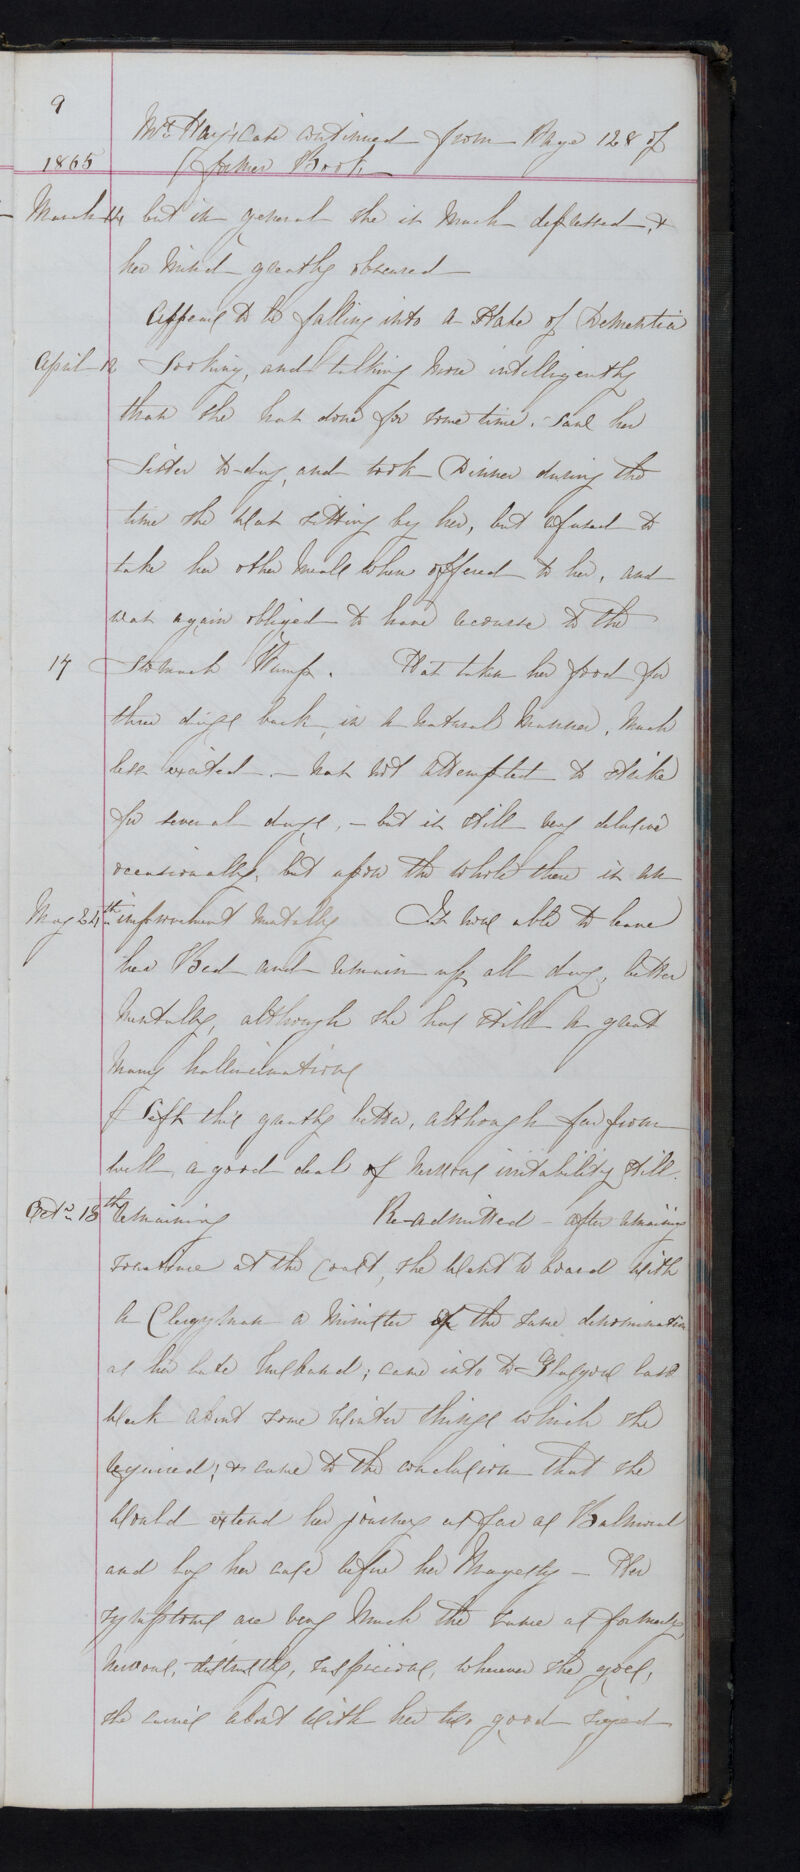 9
Mrs Hay's case continued from Page 128 of
1865 former Book
March 14 but in general she is much depressed, &
her mind greatly obscured
Appears to be falling into a state of Dementia
April 12 Looking, and talking more intelligently
than she has done for some time. Saw her
Sister to-day, and took Dinner during the
time she was sitting by her, but refused to
take her other meals when offered to her, and
was again obliged to have recourse to the
17 Stomach Pump. Has taken her food for
three days back, in a natural manner, much
less excited. - has not attempted to strike
for several days, - but is still very delusive
occasionally, but upon the whole there is an
May 24th improvement mentally Is now able to leave
her Bed and remain up all day, better
mentally, although she has still a great
many hallucinations
Left this greatly better, although far from
well, a good deal of nervous irritability still
Octr 18th remaining Re-admitted - after remaining
sometime at the coast, she went to board with
a Clergyman a Minister of the same denomination
as her late husband; came into to Glasgow last
week about some Winter things which she
required; & came to the conclusion that she
would extend her journey as far as Balmoral
and lay her case before her Magesty - Her
symptoms are very much the same as formerly,
nervous, distrustful, suspicious, wherever she goes,
she carries about with her two good sized